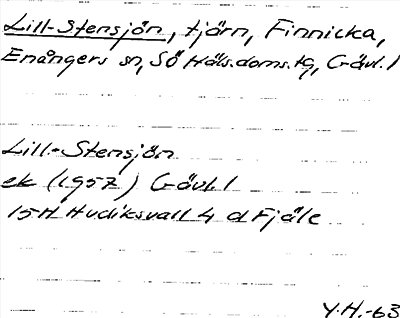 Lill-Stensjön, tjärn, Finnicka,
Enångers sn, Sö Häls.doms.tg, Gävl. l
Lill-Stensjön
ek (1957) Gävl. l
15H Hudiksvall 4 d Fjäle
Y.H.-63